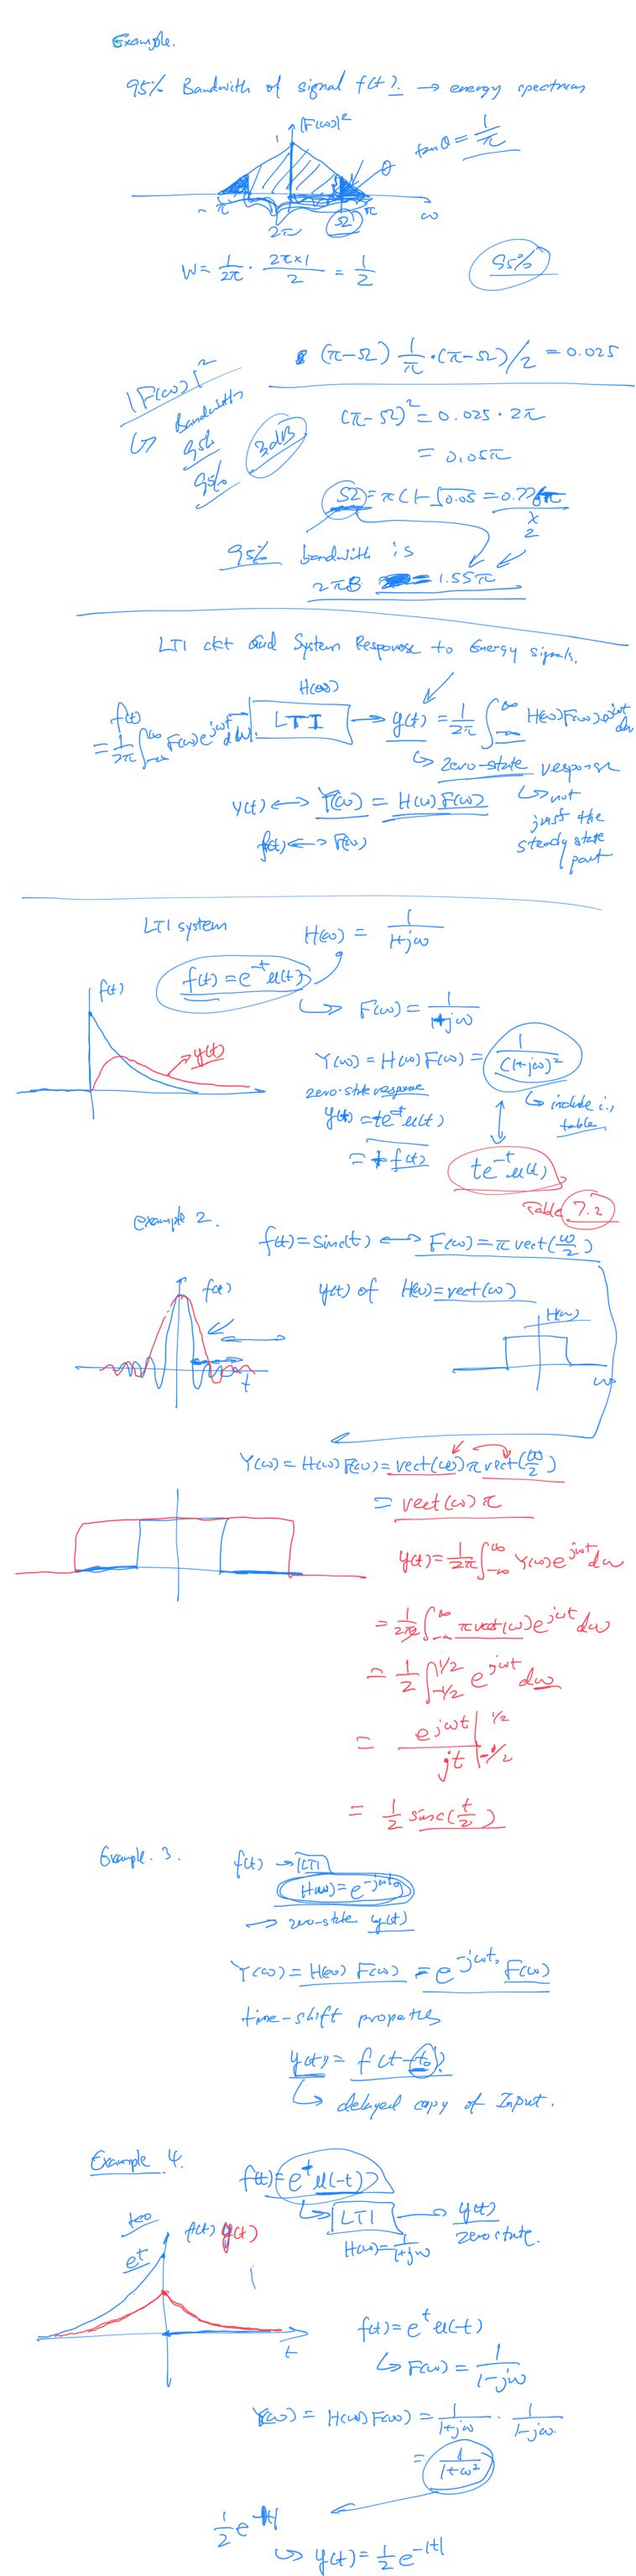 Example.
95% Bandwith of signal f(t). → energy spectrum
|F(ω)|²
1
θ
tanθ = 1/π
-π
2π
Ω
π
ω
W = 1/2π · 2π×1/2 = 1/2
95%
(π-Ω) 1/π · (π-Ω)/2 = 0.025
|F(ω)|²
↳ Bandwidth
95%
95%
3dB
(π-Ω)² = 0.025 · 2π
= 0.05π
Ω = π(1-√0.05 = 0.776π
×
2
95% bandwith is
2πB = 1.55π
LTI ckt and System Response to Energy signals.
H(ω)
f(t)
= 1/2π ∫-∞^∞ F(ω)e^jωt dω. LTI → y(t) = 1/2π ∫-∞^∞ H(ω)F(ω)e^jωt dω
↳ zero-state response
↳ not
just the
steady state
part
Y(t) ↔ Y(ω) = H(ω)F(ω)
f(t) ↔ F(ω)
LTI system
H(ω) = 1/1+jω
f(t) = e^-t u(t)
↳ F(ω) = 1/1+jω
f(t)
y(t)
Y(ω) = H(ω)F(ω) = 1/(1+jω)²
zero-state response
↳ include in
table
y(t) = te^-t u(t)
= t f(t)
te^-t u(t)
Table 7.2
example 2.
f(t) = sinc(t) ↔ F(ω) = π rect(ω/2)
f(t)
t
y(t) of H(ω) = rect(ω)
H(ω)
ω
Y(ω) = H(ω)F(ω) = rect(ω) π rect(ω/2)
= rect(ω) π
y(t) = 1/2π ∫-∞^∞ Y(ω) e^jωt dω
= 1/2π ∫-∞^∞ π rect(ω) e^jωt dω
= 1/2 ∫-1/2^1/2 e^jωt dω
= e^jωt/jt |-1/2^1/2
= 1/2 sinc(t/2)
Example. 3.
f(t) → LTI
H(ω) = e^-jωt₀
→ zero-state y(t)
Y(ω) = H(ω) F(ω) = e^-jωt₀ F(ω)
time-shift properties
y(t) = f(t-t₀)
↳ delayed copy of Input.
Example 4.
f(t) = e^t u(-t)
↳ LTI → y(t)
zero state.
H(ω) = 1/1+jω
t<0
e^t
f(t) y(t)
t
f(t) = e^t u(-t)
↳ F(ω) = 1/1-jω
Y(ω) = H(ω)F(ω) = 1/1+jω · 1/1-jω
= 1/1+ω²
1/2 e^-|t|
↳ y(t) = 1/2 e^-|t|